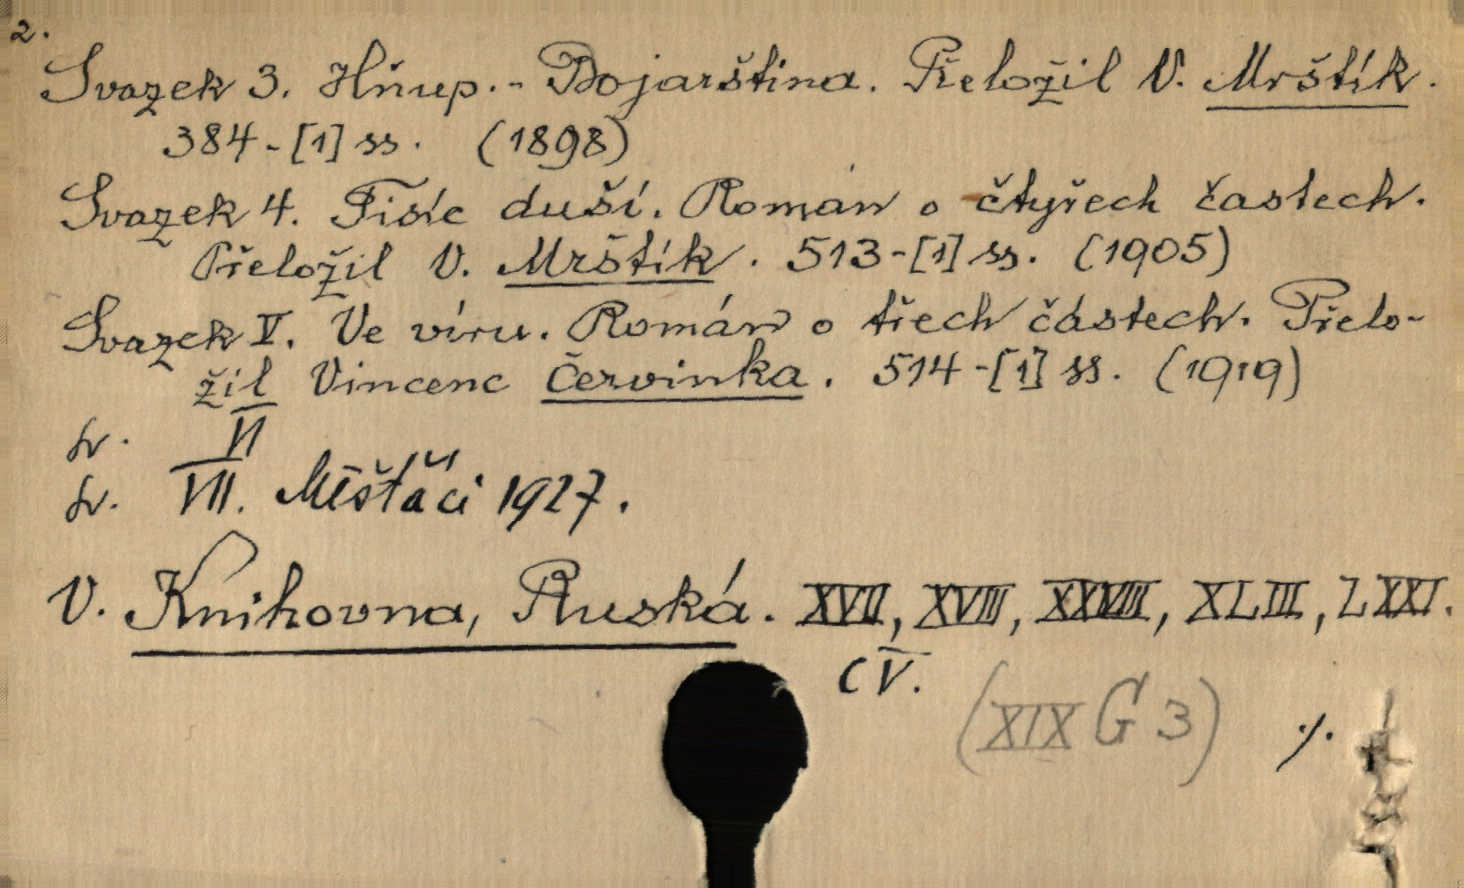 2.
Svazek 3. Hňup. - Bojarština. Přeložil V. Mrštík.
384-[1] ss. (1898)
Svazek 4. Tisíc duší. Román o čtyřech častech.
Přeložil V. Mrštík. 513-[1] ss. (1905)
Svazek V. Ve víru. Román o třech částech. Přelo-
žil Vincenc Červinka. 514-[1] ss. (1919)
sv. VI
sv. VII. Měšťáci 1927.
V. Knihovna, Ruská. XVII, XVIII, XXVIII, XLIII, LXXI.
CV.
(XIX G 3) ./.